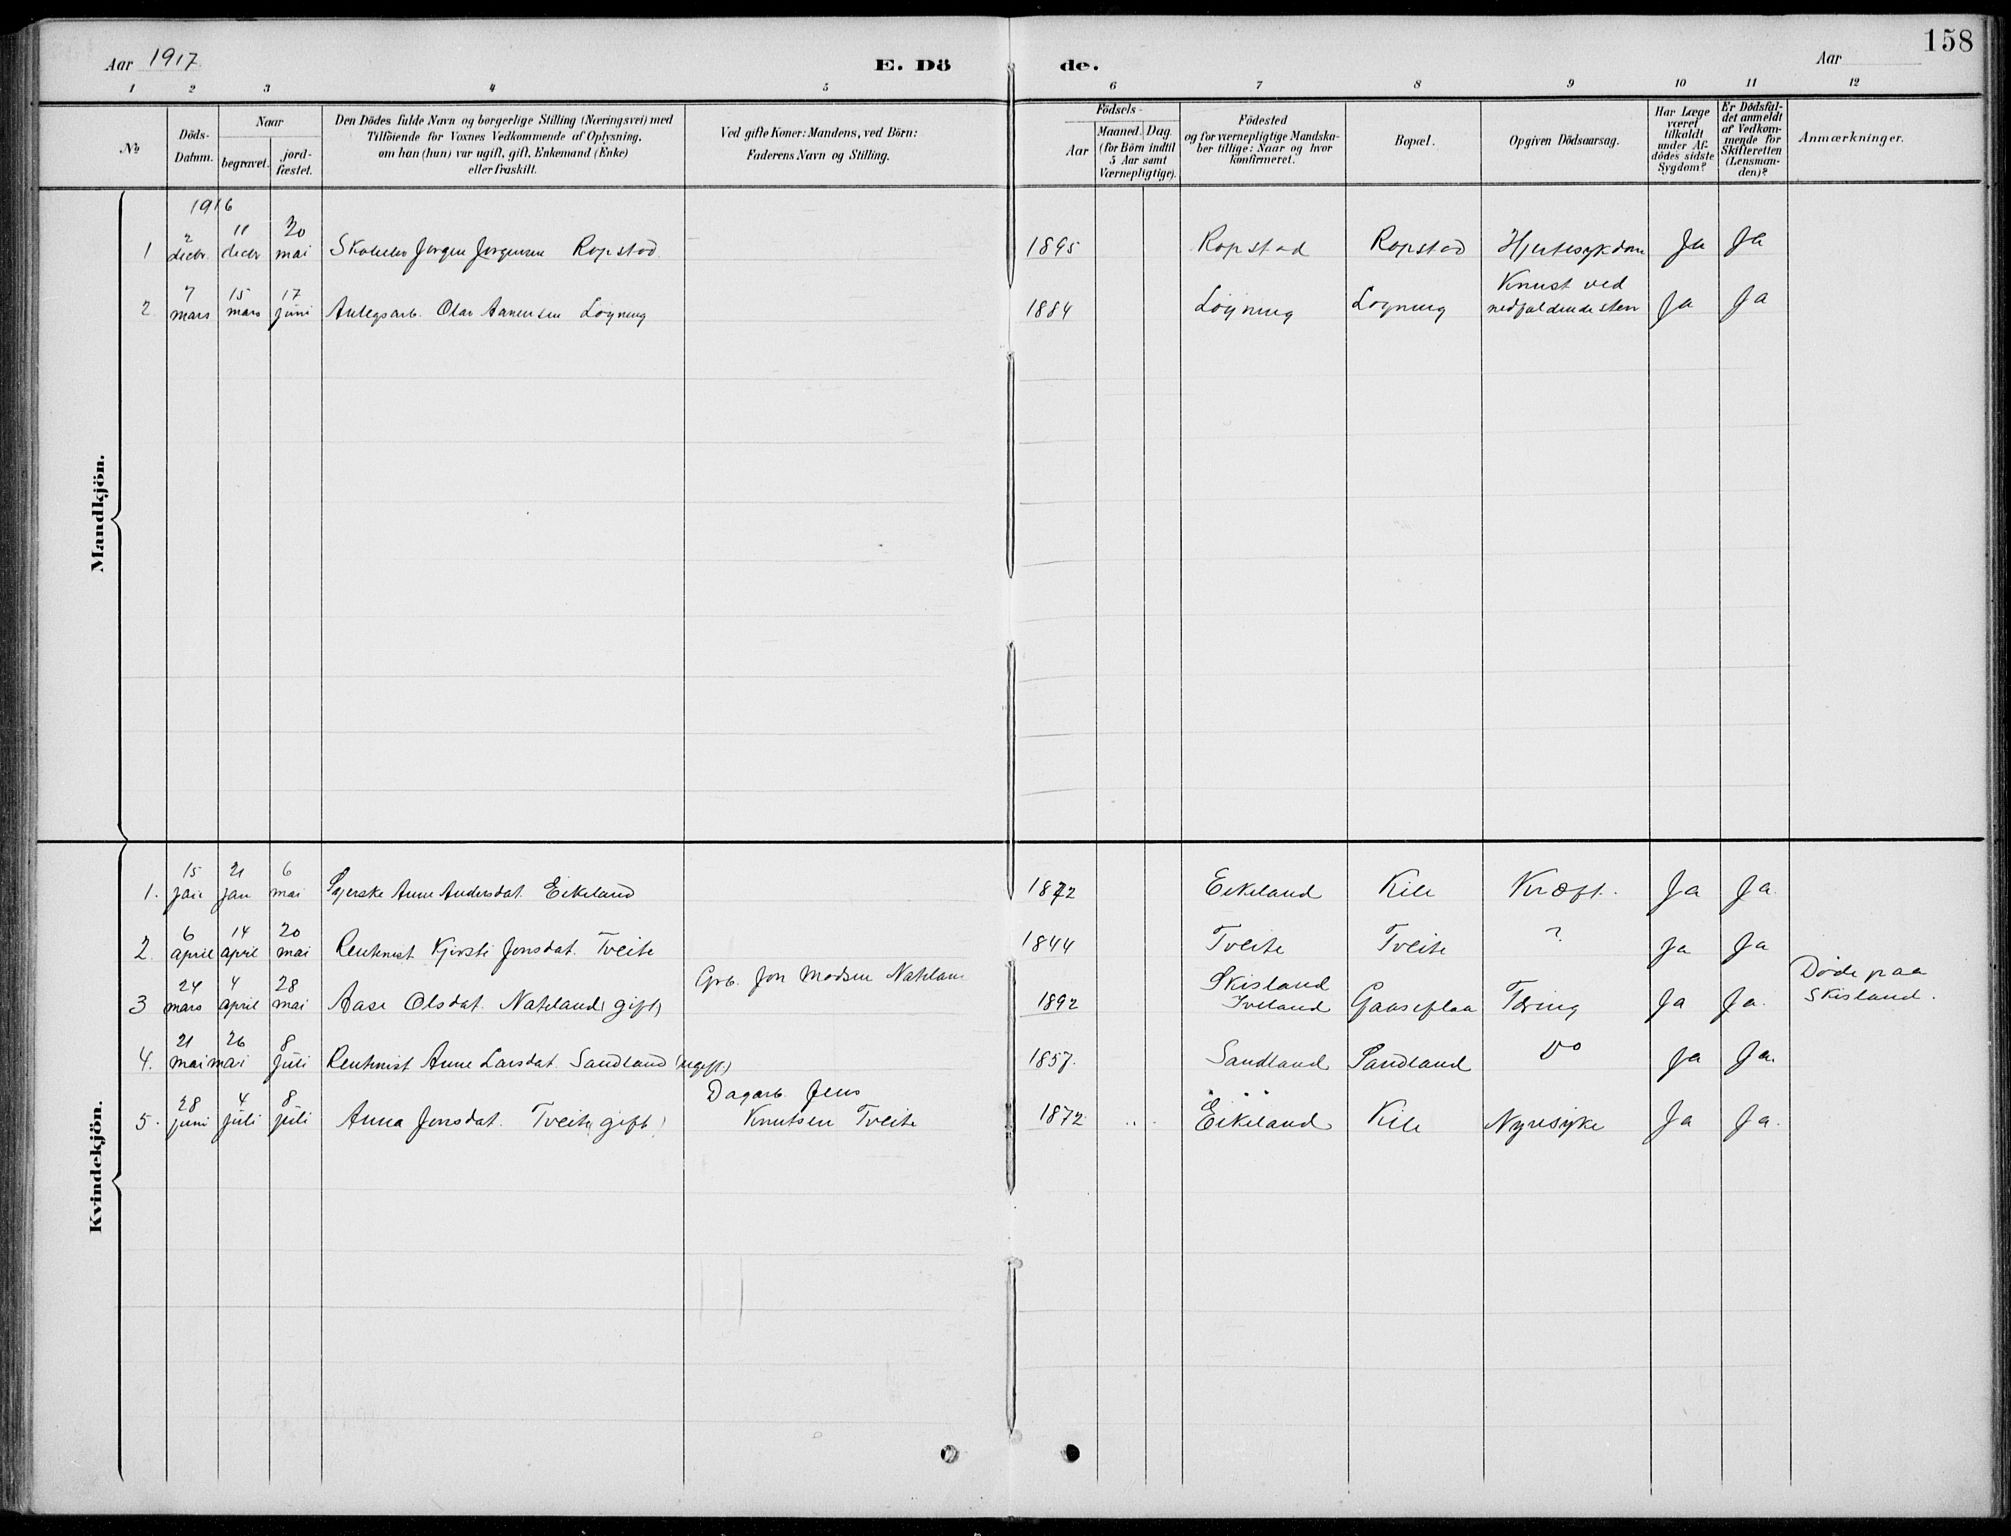 Aar 1917
E. Dö de.
Aar
158
1 2 3 4 5 6 7 8 9 10 11 12
No
Döds-
Datum.
Naar
begravet.
jord-
fæstet.
Den Dödes fulde Navn og borgerlige Stilling (Næringsvei) med
Tilföiende for Voxnes Vedkommende af Oplysning,
om han (hun) var ugift, gift, Enkemand (Enke)
eller fraskilt.
Ved gifte Koner: Mandens, ved Börn:
Faderens Navn og Stilling.
Födsels-
Aar
Maaned. Dag.
(for Börn indtil
5 Aar samt
Værnepligtige).
Födested
og for værnepligtige Mandska-
ber tillige: Naar og hvor
konfirmeret.
Bopæl.
Opgiven Dödsaarsag.
Har Læge
været
tilkaldt
under Af-
dödes sidste
Sygdom?
Er Dödsfal-
det anmeldt
af Vedkom-
mende for
Skifteretten
(Lensman-
den)?
Anmærkninger.
Mandkjön.
1916
2 11 20
1 decbr. decbr mai Skoleelev Jørgen Jørgensen Ropstad. 1895 Ropstad Ropstad Hjertesykdom Ja Ja
7 15 17 Knust ved
2. mars mars juni Anlegsarb. Olav Aanensen Løyning 1884 Løyning Løyning nedfaldende sten Ja Ja
Kvindekjön.
15 21 6
1. jan jan mai Syerske Anne Andersdat. Eikeland 1872 Eikeland Kile Kræft. Ja Ja.
6 14 20
2. april april mai Rentenist Kjirsti Jonsdat. Tveite 1844 Tveite Tveite ? Ja Ja
24 4 28 Grb. Jon Madsen Nateland Skisland Døde paa
3 mars april mai Aase Olsdat. Nateland (gift) 1892 Iveland Gaaseflaa Tæring Ja Ja. Skisland.
21 26 8
4. mai mai juli Rentenist Anne Larsdat. Sandland (ugift) 1857. Sandland Sandland Do Ja Ja.
28 4 8 Dagarb. Jens
5. juni juli juli Anna Jonsdat. Tveite (gift) Knutsen Tveite 1872 Eikeland Kile Nyresyke Ja Ja.